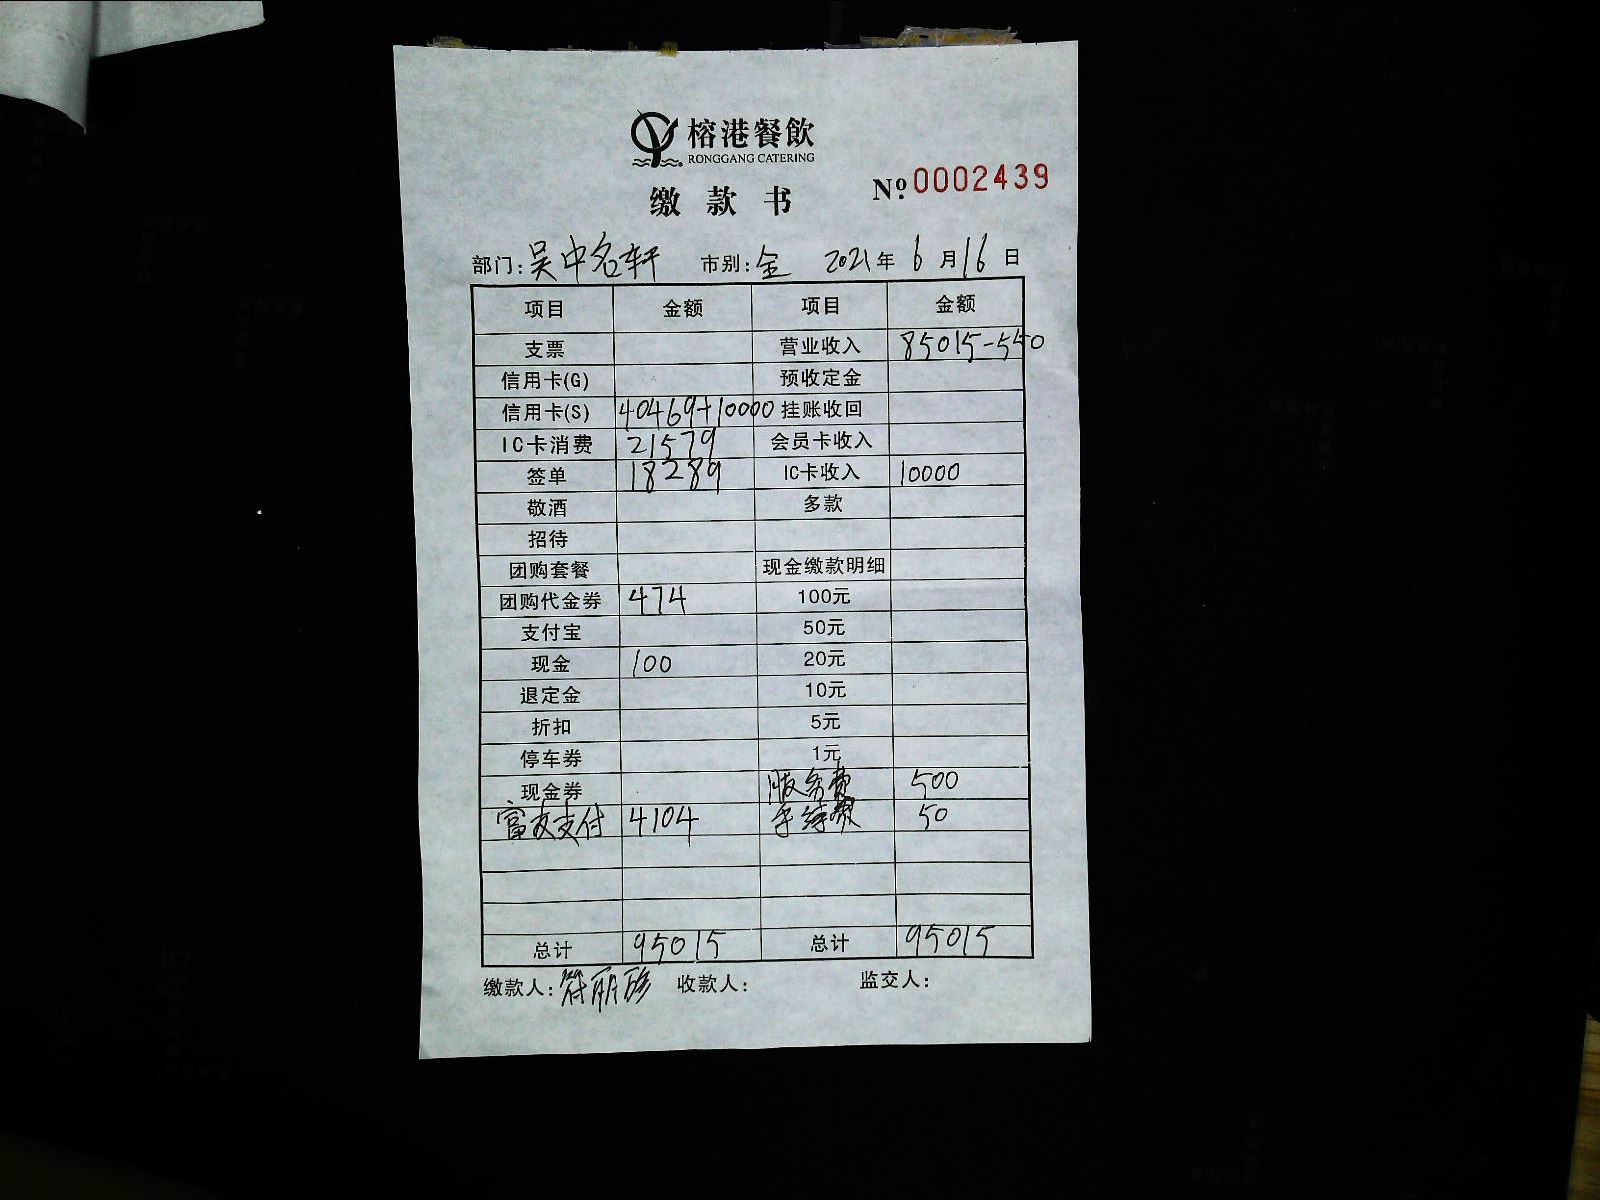 榕港餐飲
RONGGANG CATERING
缴款书 Nº 0002439
部门: 吴中名轩 市别: 全 2021年 6月16日
项目 金额 项目 金额
支票 营业收入 85015-550
信用卡(G) 预收定金
信用卡(S) 40469+10000 挂账收回
IC卡消费 21579 会员卡收入
签单 18289 IC卡收入 10000
敬酒 多款
招待
团购套餐 现金缴款明细
团购代金券 474 100元
支付宝 50元
现金 100 20元
退定金 10元
折扣 5元
停车券 1元
现金券 服务费 500
富友支付 4104 手续费 50
总计 95015 总计 95015
缴款人: 符丽珍 收款人: 监交人: